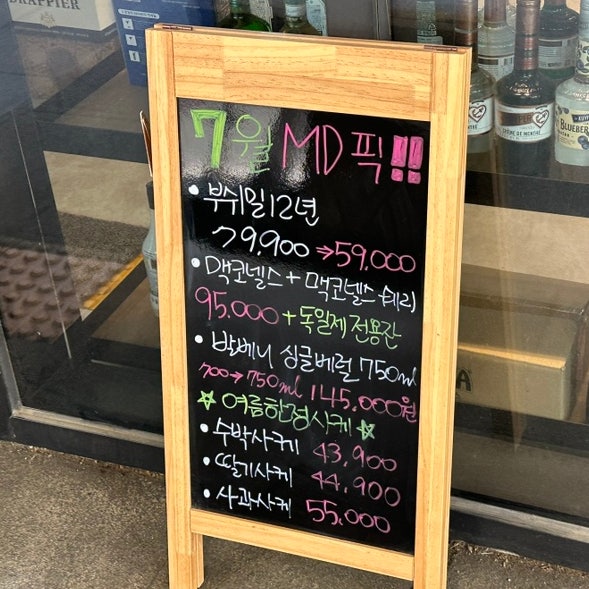 DRAPPIER
7월 MD픽!!
• 부쉬밀12년
79,900→59,000
• 맥코넬스+맥코넬스쉐리
95.000+독일제 전용잔
• 발베니 싱글베럴 750ml
700→750ml 145.000원
☆여름한정사케☆
• 수박사케 43,900
• 딸기사케 44,900
• 사과사케 55.000
CRÈME DE MENTHE
BLUEBER